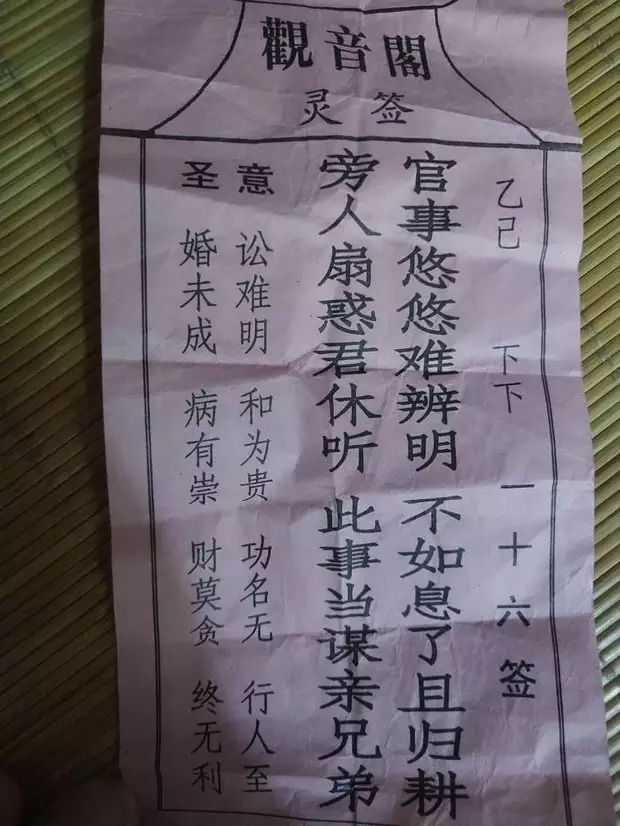 觀音閣
灵签
乙己 下下 一十六签
官事悠悠难辨明 不如息了且归耕
旁人扇惑君休听 此事当谋亲兄弟
圣意
讼难明 和为贵 功名无 行人至
婚未成 病有崇 财莫贪 终无利